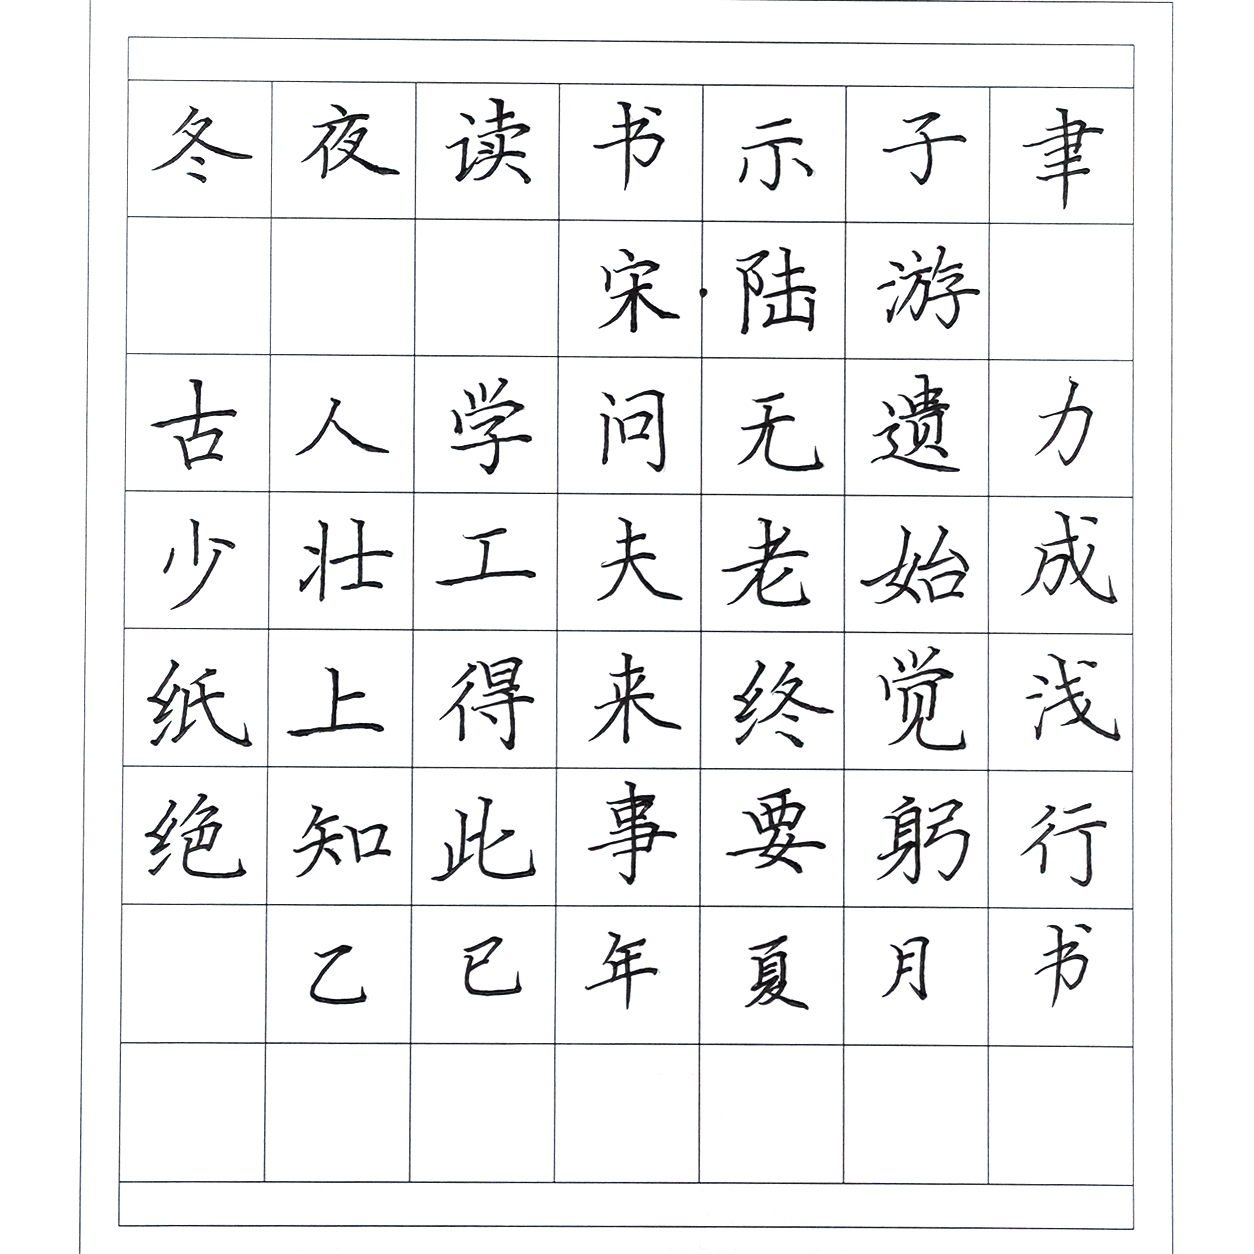 冬夜读书示子聿
宋·陆游
古人学问无遗力
少壮工夫老始成
纸上得来终觉浅
绝知此事要躬行
乙巳年夏月书